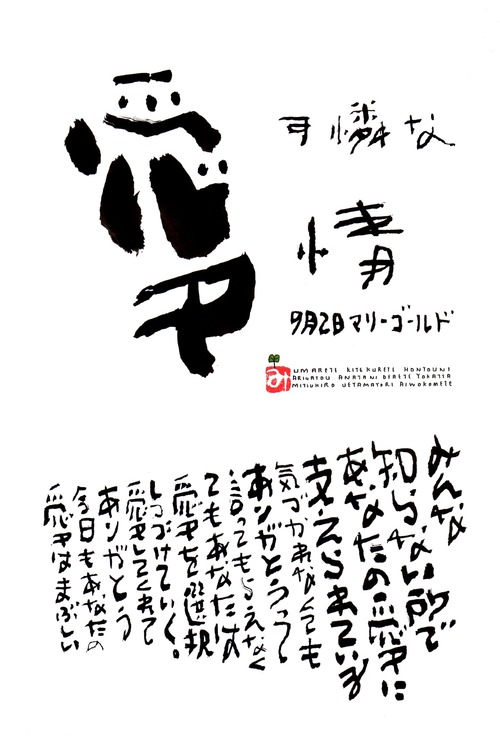 愛
可憐な
情
9月2日マリーゴールド
み
UMARETE KITEKURETE HONTOUNI
ARIGATOU ANATANI DEAETE YOKATTA
MITUHIRO UETAMAYORI AIWOKOMETE
みんな
知らない所で
あなたの愛に
支えられている
気づかれなくても
ありがとうって
言ってもらえなく
てもあなたは
愛を選択
しつづけていく。
愛してくれて
ありがとう
今日もあなたの
愛はまぶしい